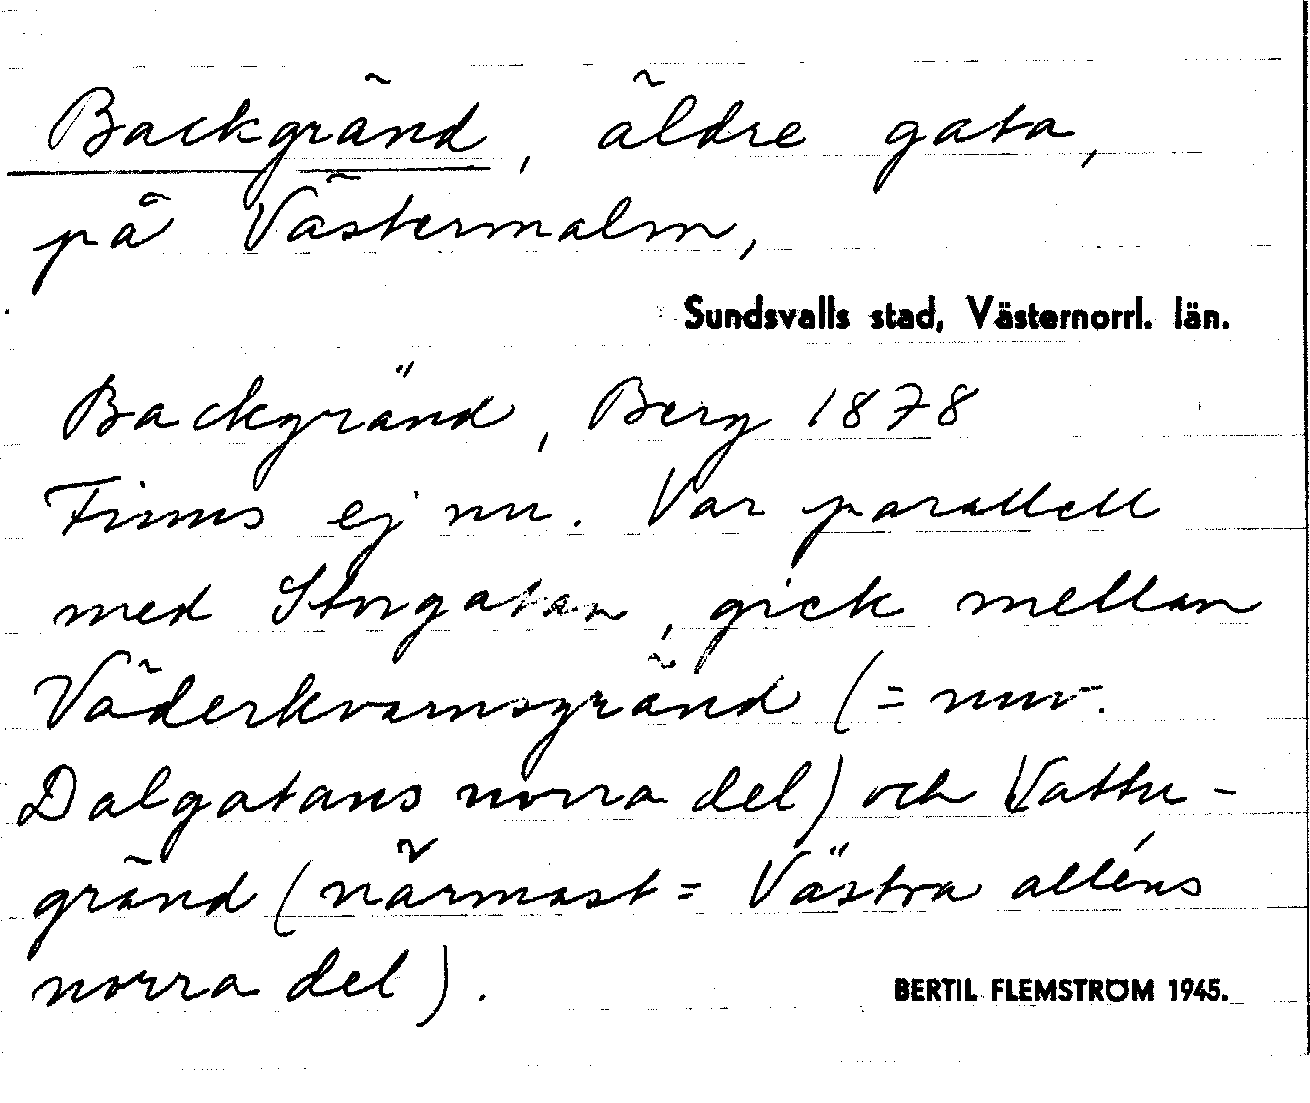 Backgränd, äldre gata,
på Västermalm,
Sundsvalls stad, Västernorrl. län.
Backgränd, Berg 1878
Finns ej nu. Var parallell
med Storgatan, gick mellan
Väderkvarnsgränd (= nuv.
Dalgatans norra del) och Vattu-
gränd (närmast = Västra alléns
norra del).
BERTIL FLEMSTRÖM 1945.